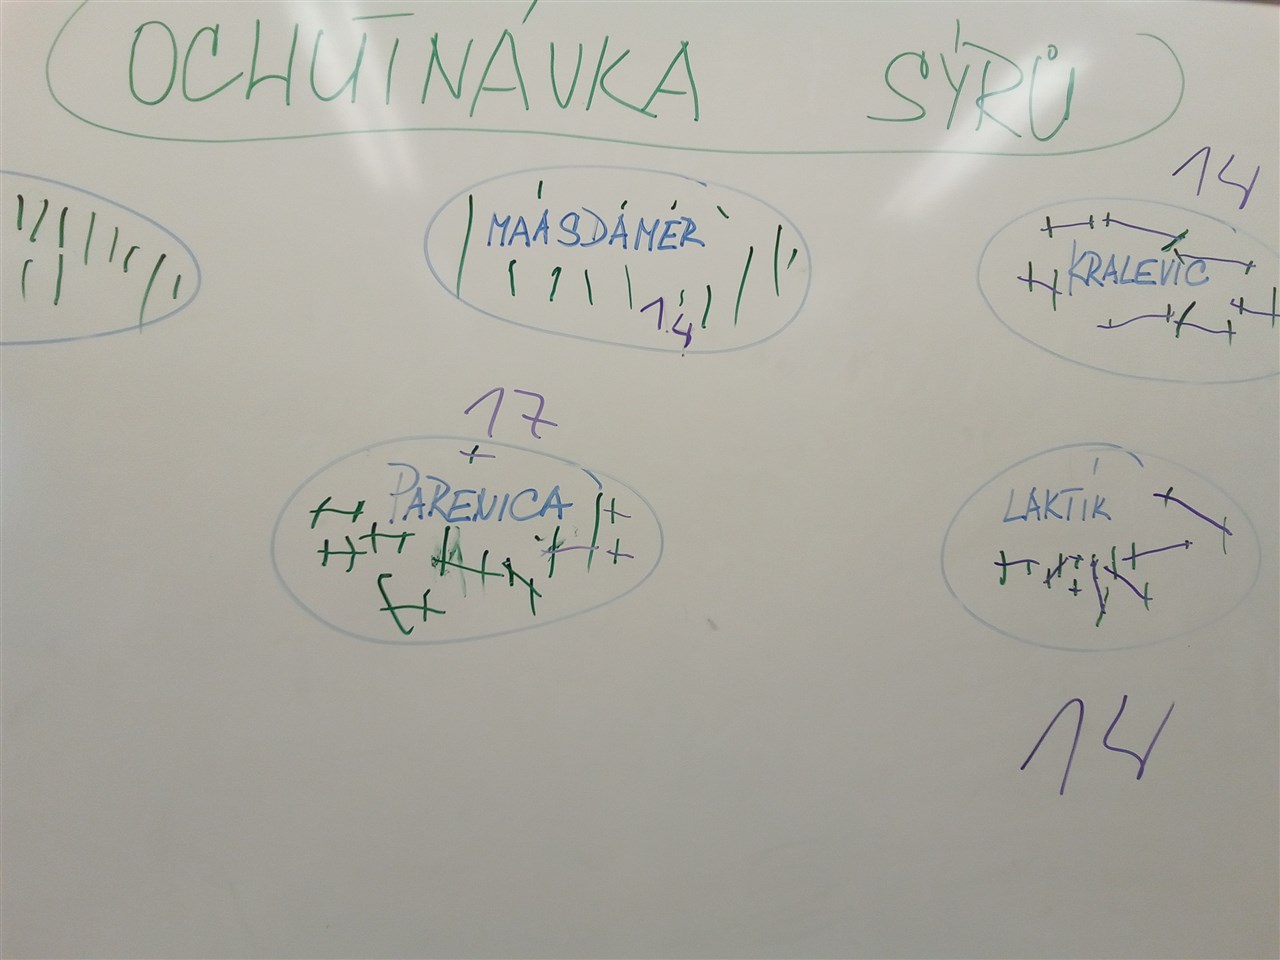 OCHUTNÁVKA SÝRŮ
14
MAÁSDÁMÉR
KRALEVIC
14
17
PAŘENICA
LAKTIK
14